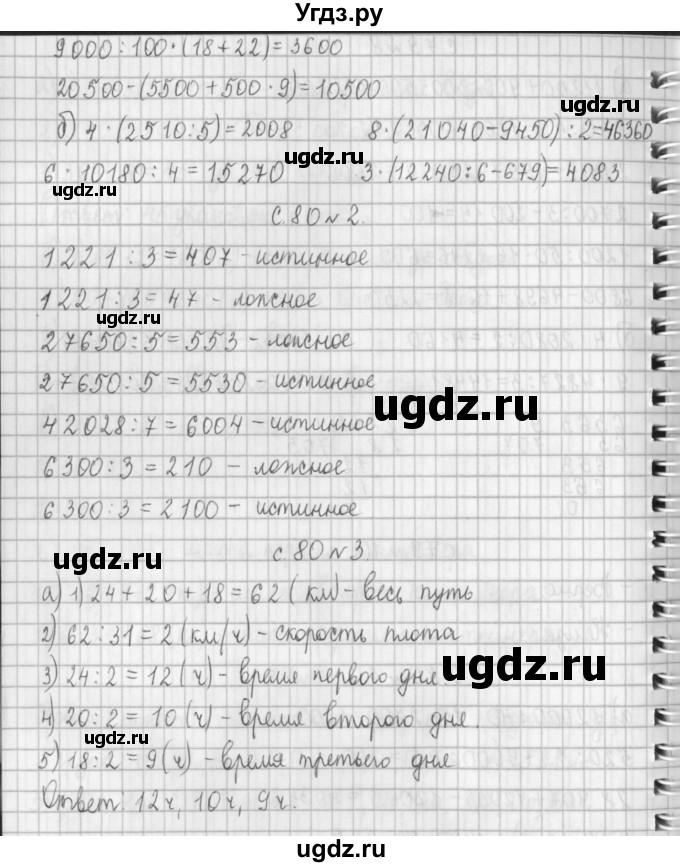 Угдз.ру
9000:100·(18+22)=3600
20500-(5500+500·9)=10500
ugdz.ru
б) 4·(2510:5)=2008 8·(21040-9450):2=46360
ugdz.ru
6·10180:4=15270 3·(12240:6-679)=4083
ugdz.ru ugdz.ru
с.80 №2.
1221:3=407 - истинное
1221:3=47 - ложное
ugdz.ru
27650:5=553 - ложное
27650:5=5530 - истинное
ugdz.ru
42028:7=6004 - истинное
6300:3=210 - ложное
6300:3=2100 - истинное
с.80 №3
ugdz.ru
а) 1) 24+20+18=62 (км) - весь путь
2) 62:31=2 (км/ч) - скорость плота
ugdz.ru
3) 24:2=12 (ч) - время первого дня.
4) 20:2=10 (ч) - время второго дня.
ugdz.ru
5) 18:2=9 (ч) - время третьего дня
ugdz.ru
Ответ: 12ч, 10ч, 9ч.
ugdz.ru